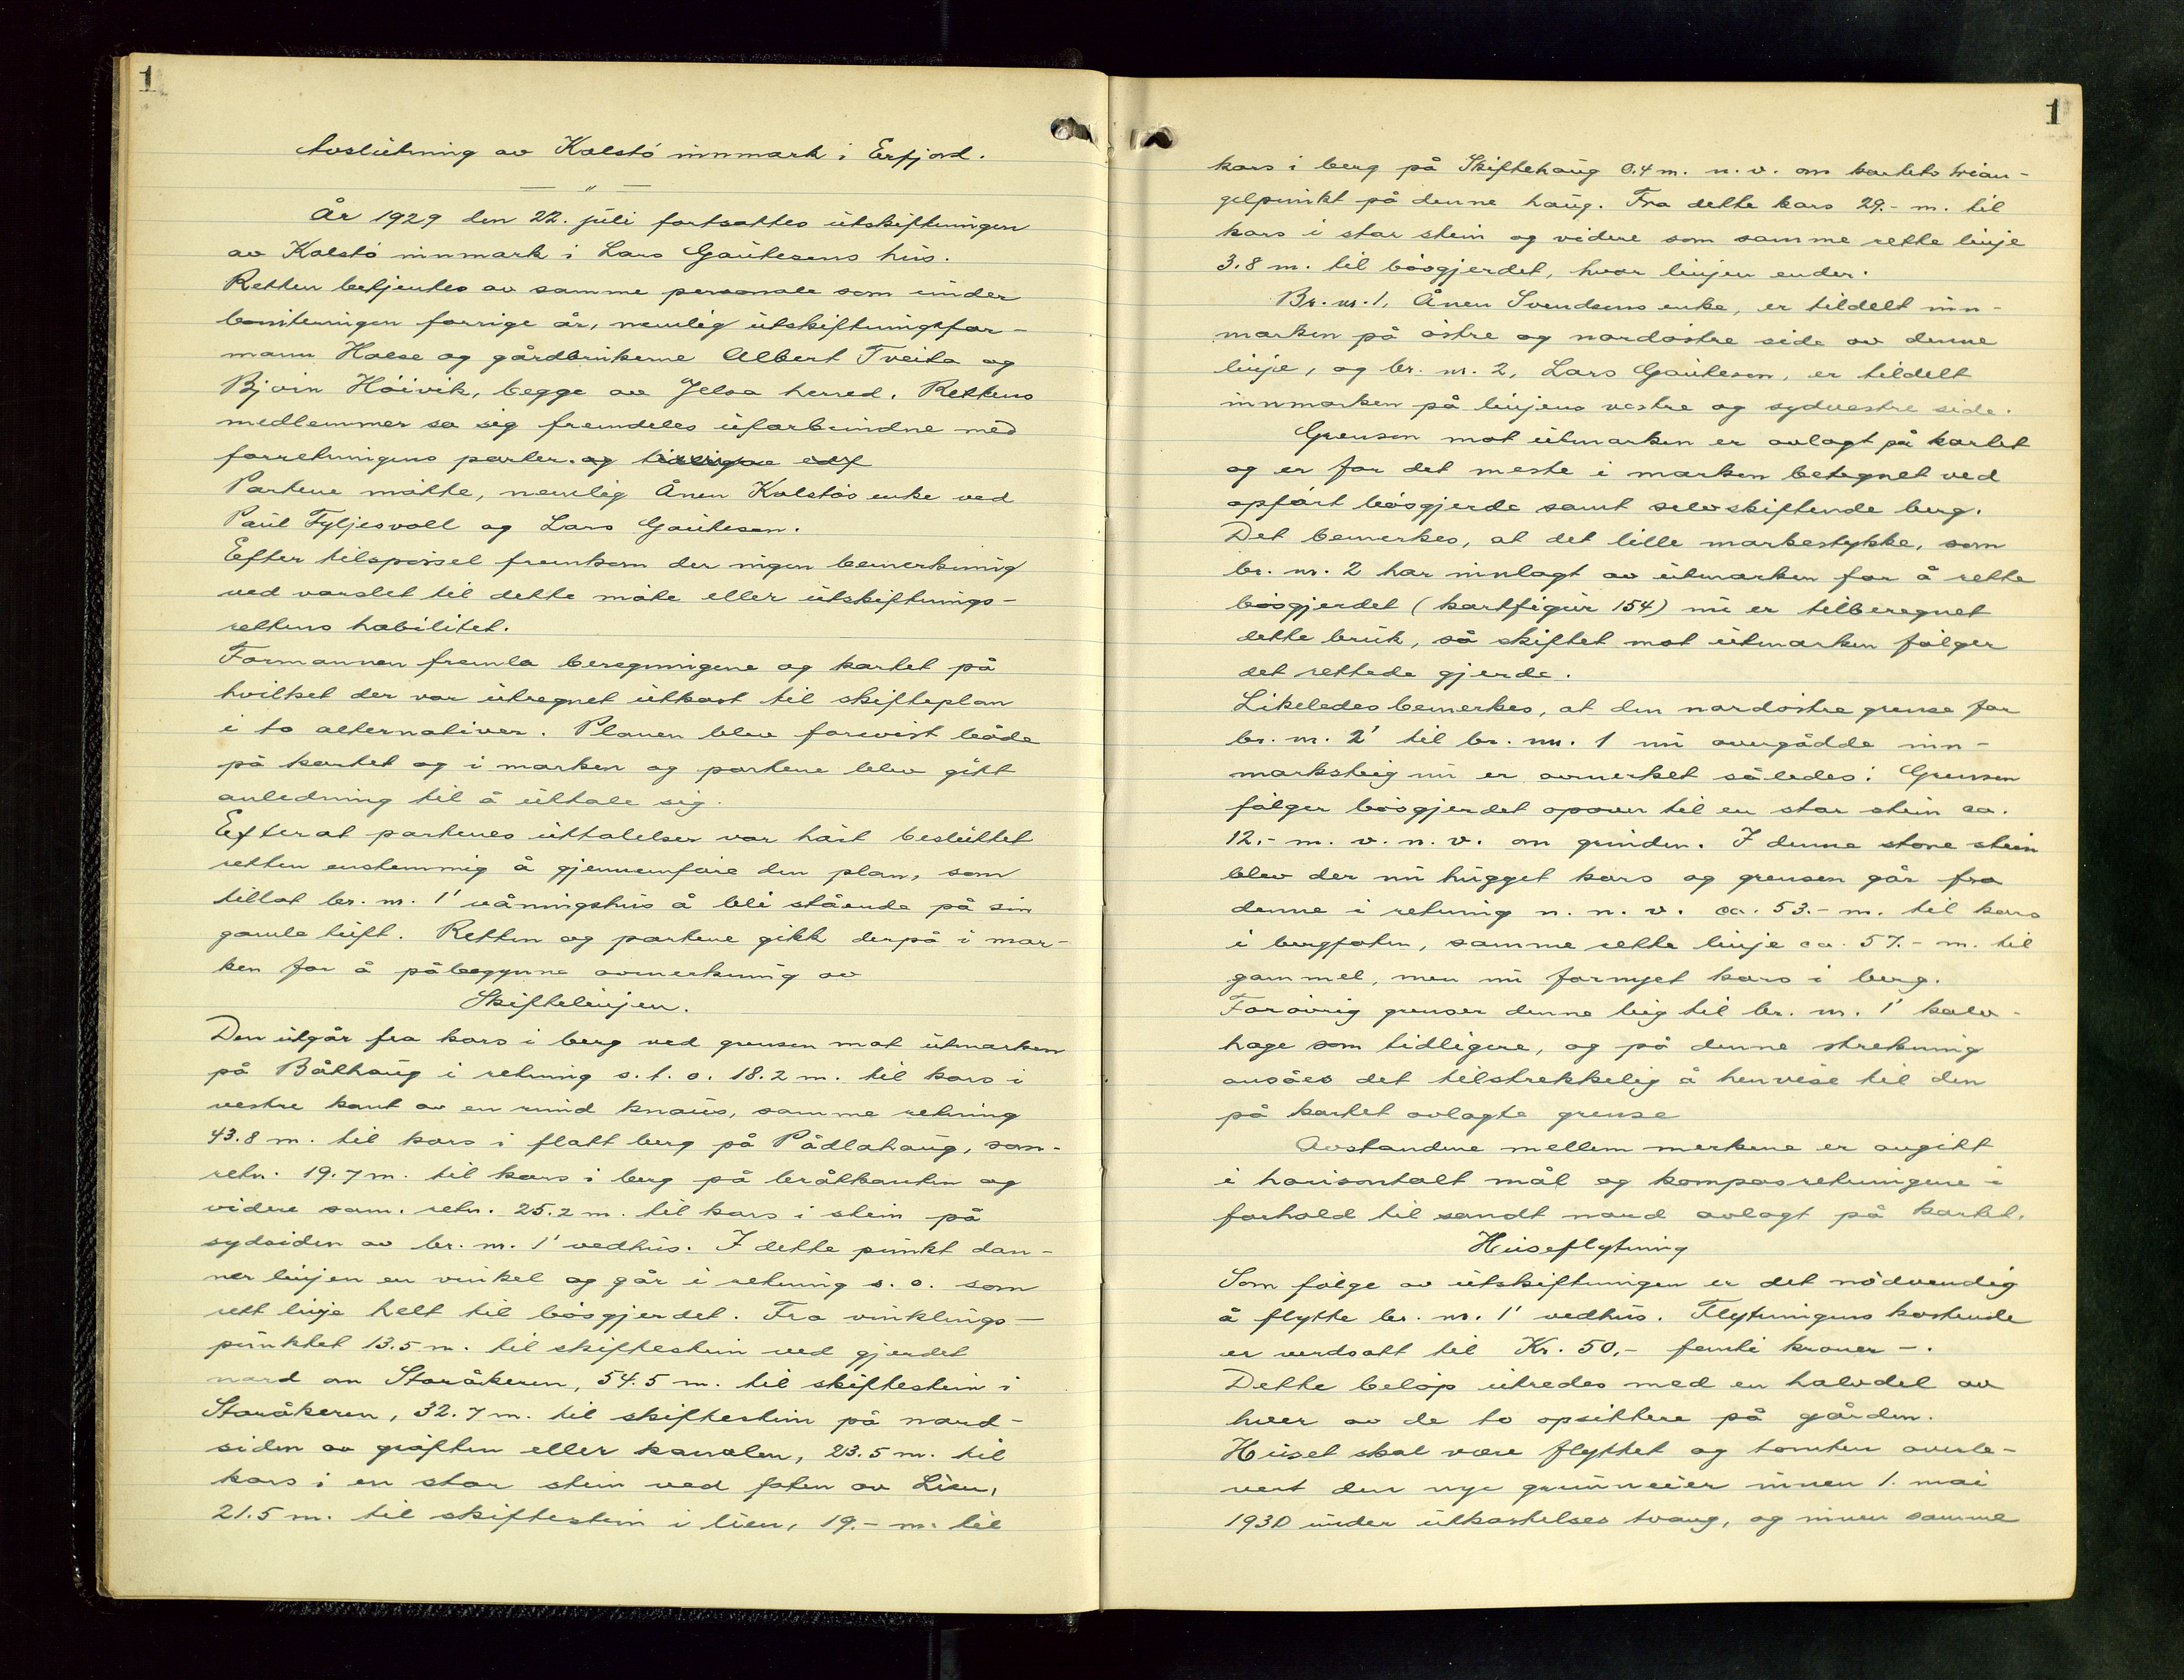 1
Avslutning av Kolstö innmark i Erfjord.
— " —
År 1929 den 22. juli fortsattes utskiftningen
av Kolstö innmark i Lars Gautesens hus.
Retten betjentes av samme personale som under
boniteringen forrige år, nemlig utskiftningsfor-
mann Hoese og gårdbrukerne Albert Tveita og
Bjoin Höivik, begge av Jelsa herred. Rettens
medlemmer sa sig fremdeles uforbundne med
forretningens parter. og
Partene møtte, nemlig Ånen Kolstös enke ved
Paul Fyljesvoll og Lars Gautesen.
Efter tilspörsel fremkom der ingen bemerkning
ved varslet til dette möte eller utskiftnings-
rettens habilitet.
Formannen fremla beregningene og kartet på
hvilket der var utregnet utkast til skifteplan
i to alternativer. Planen blev forevist både
på kartet og i marken og partene blev gitt
anledning til å uttale sig.
Efterat partenes uttalelser var hört besluttet
retten enstemmig å gjennemföre den plan, som
tillot br. nr. 1' våningshus å bli stående på sin
gamle tuft. Retten og partene gikk derpå i mar-
ken for å påbegynne avmerkning av
Skiftelinjen.
Den utgår fra kors i berg ved grensen mot utmarken
på Bålhaug i retning s. t. o. 18.2 m. til kors i
vestre kant av en rund knaus, samme retning
43.8 m. til kors i flatt berg på Pådlahaug, sam-
retn. 19.7 m. til kors i berg på bråtkanten og
videre sam. retn. 25.2 m. til kors i stein på
sydsiden av br. nr. 1' vedhus. I dette punkt dan-
ner linjen en vinkel og går i retning s. o. som
rett linje helt til bösgjerdet. Fra vinklings-
punktet 13.5 m. til skiftestein ved gjerdet
nord om Storåkeren, 54.5 m. til skiftestein i
Storåkeren, 32.7 m. til skiftestein på nord-
siden av gröften eller kanalen, 23.5 m. til
kors i en stor stein ved foten av Lien,
21.5 m. til skiftestein i lien, 19.- m. til
1
kors i berg på Skiftehaug 0.4 m. n. v. om kartets trian-
gelpunkt på denne haug. Fra dette kors 29.- m. til
kors i stor stein og videre som samme rette linje
3.8 m. til bösgjerdet, hvor linjen ender.
Br. nr. 1, Ånen Svendsens enke, er tildelt inn-
marken på östre og nordöstre side av denne
linje, og br. nr. 2, Lars Gautesen, er tildelt
innmarken på linjens vestre og sydvestre side.
Grensen mot utmarken er avlagt på kartet
og er for det meste i marken betegnet ved
opfört bösgjerde samt selvskiftende berg.
Det bemerkes, at det lille markestykke, som
br. nr. 2 har innlagt av utmarken for å rette
bösgjerdet (kartfigur 154) nu er tilberegnet
dette bruk, så skiftet mot utmarken fölger
det rettede gjerde.
Likeledes bemerkes, at den nordöstre grense for
br. nr. 2' til br. nr. 1 nu avergådde inn-
marksteig nu er avmerket således: Grensen
fölger bösgjerdet opover til en stor stein ca.
12.- m. v. n. v. om grinden. I denne store stein
blev der nu hugget kors og grensen går fra
denne i retning n. n. v. ca. 53.- m. til kors
i bergfoten, samme rette linje ca. 57.- m. til
gammel, men nu fornyet kors i berg.
Forövrig grenser denne teig til br. nr. 1' kalv-
hage som tidligere, og på denne strekning
ansåes det tilstrekkelig å henvise til den
på kartet avlagte grense
Avstandene mellem merkene er avgitt
i horisontalt mål og kompasretningene i
forhold til sandt nord avlagt på kartet.
Huseflytning
Som fölge av utskiftningen er det nödvendig
å flytte br. nr. 1' vedhus. Flytningens kostende
er verdsatt til Kr. 50.- femti kroner -.
Dette belöp utredes med en halvdel av
hver av de to opsittere på gården.
Huset skal være flyttet og tomten overle-
vert den nye grunneier innen 1. mai
1930 under utkastelses tvang, og innen samme